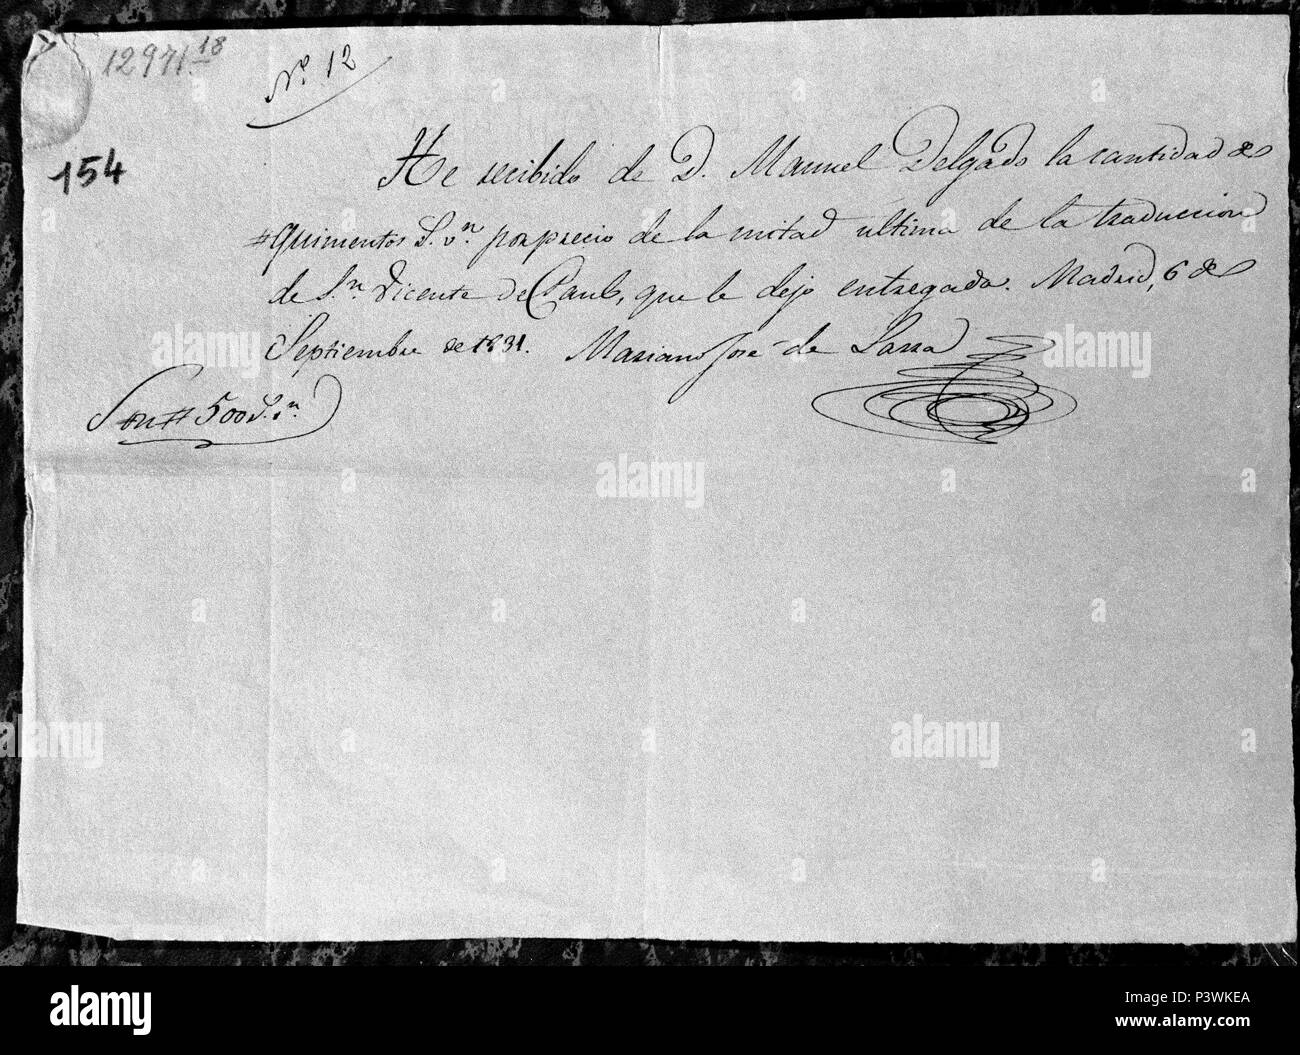 12971-18
Nº 12
154
He recibido de D. Manuel Delgado la cantidad de
#Quinientos r.s v.n por precio de la mitad ultima de la traduccion
de S.n Vicente de Paul, que le dejo entregada. Madrid, 6 de
Septiembre de 1831. Mariano José de Larra
Son # 500 r.s v.n
alamy
alamy
alamy
alamy
alamy
alamy
Image ID: P3WKEA
www.alamy.com